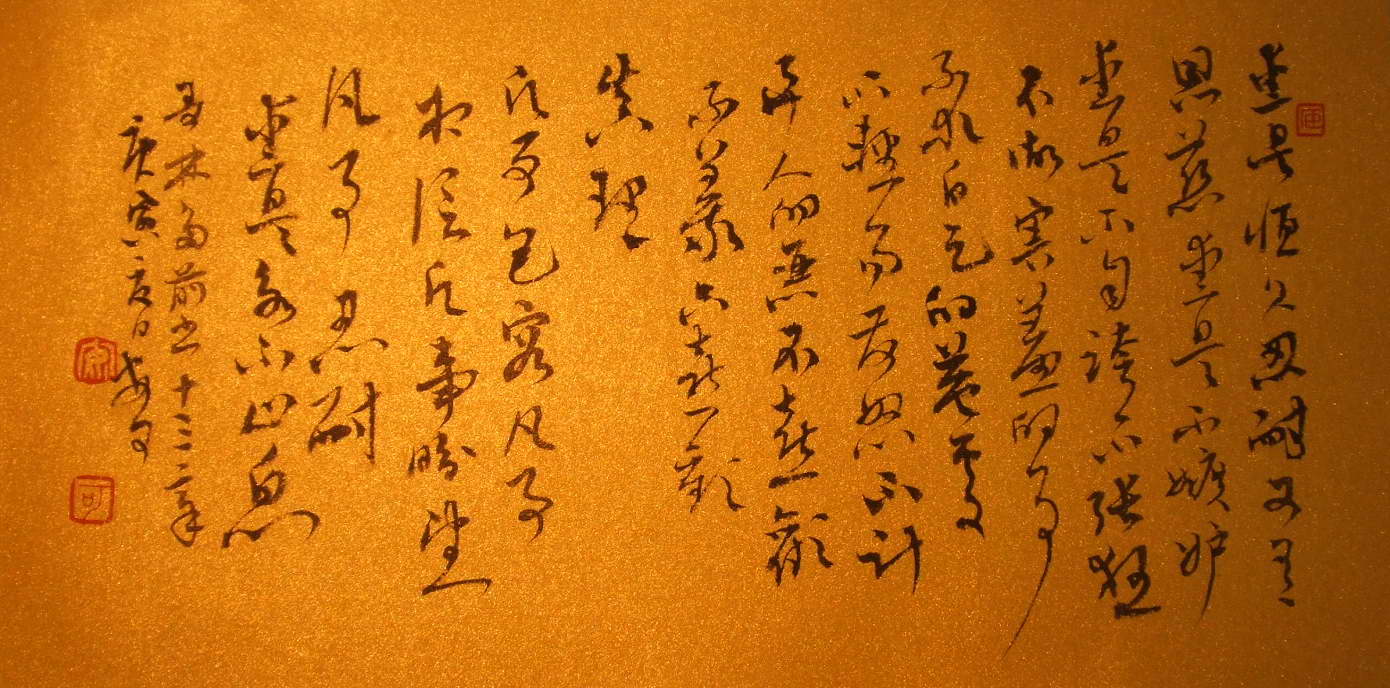 愛是恒久忍耐又有
恩慈愛是不嫉妒
愛是不自誇不張狂
不做害羞的事
不求自己的益處
不輕易發怒不計
算人的惡不喜歡
不義只喜歡
真理
凡事包容凡事
相信凡事盼望
凡事忍耐
愛是永不止息
哥林多前书十三章
庚寅夏日